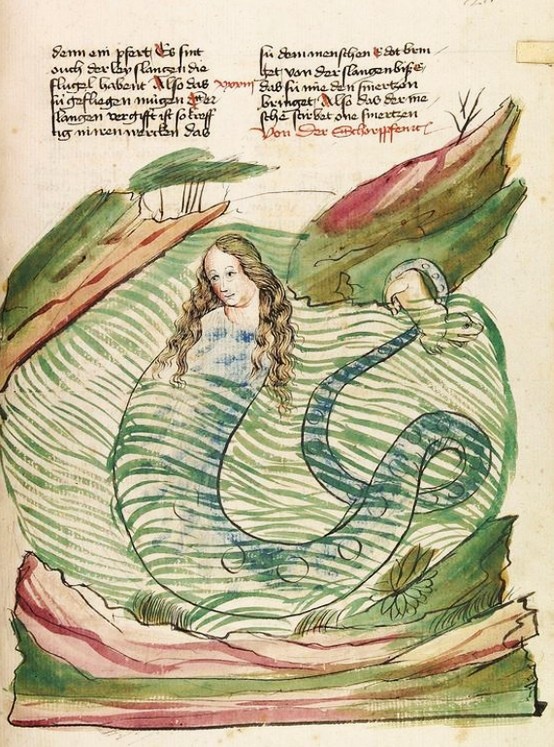 denn ein pfert Es sint
ouch der ley slangen die
flügel habent Also das
sü gefliegen mügen Er
slangen vergifft ist so
ng niren werden das
sü dem menschen E dot
get von der slangen bisse
das sü nie den smertzen
bringet Also das der me
sche stirbet one smertzen
Von der Schorppfenn